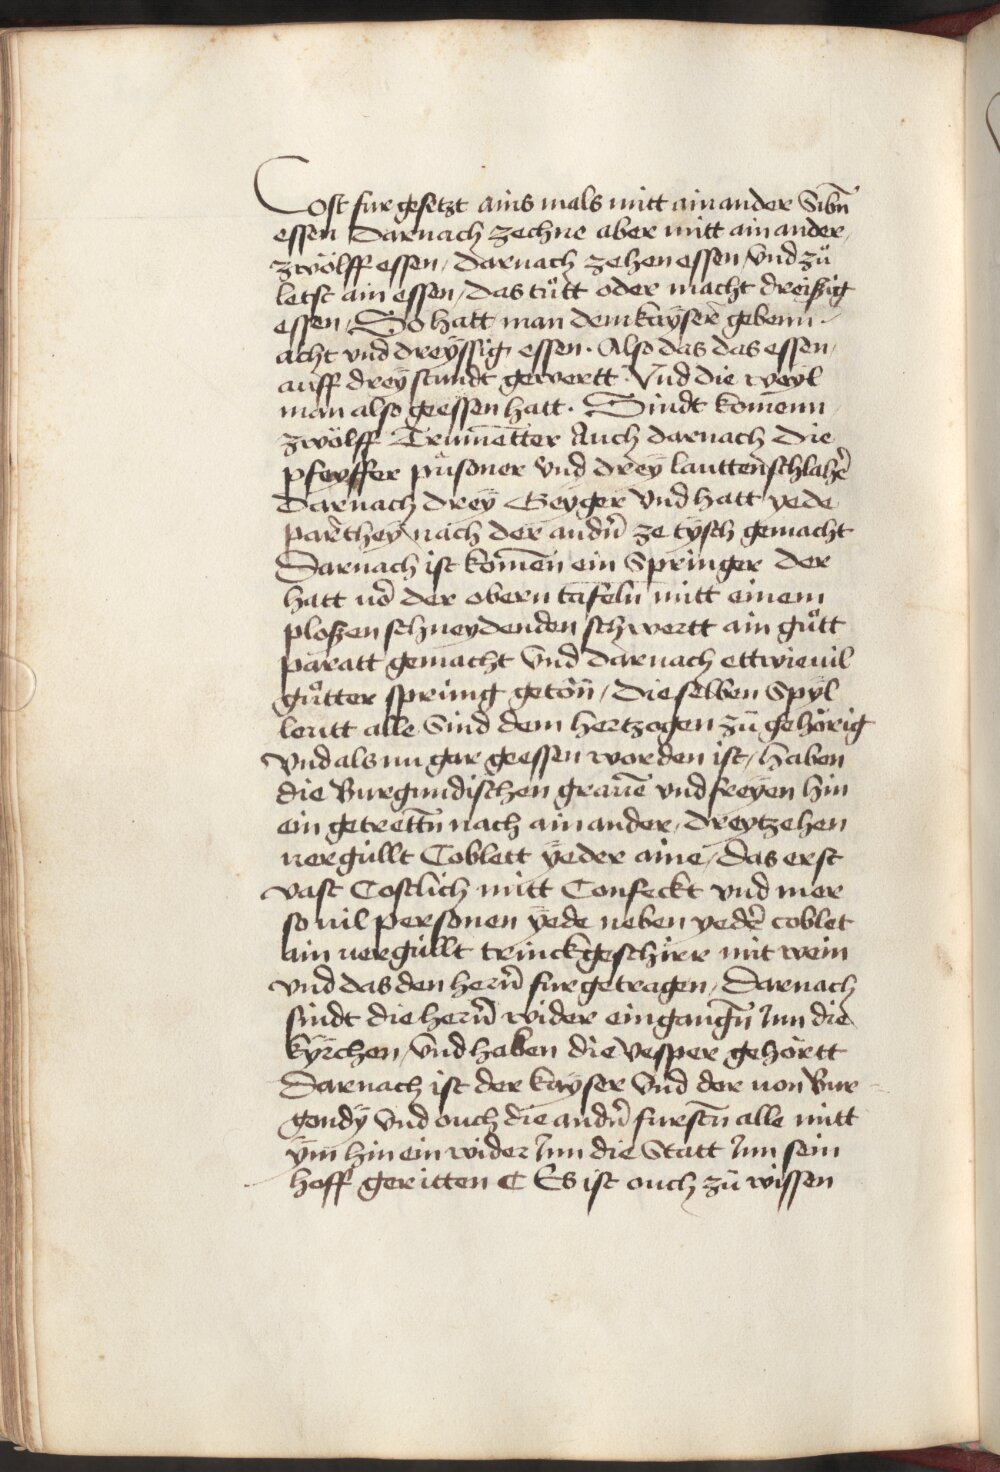 Cost fur gesetzt ains mals mitt ain ander Sibn̄
essen Darnach zechne aber mitt ain ander,
zwölff essen, darnach zehen essen, vnd zů
letst ain essen, das tůtt oder macht dreißig
essen, So hatt man dem kaÿser gebenn.
acht vnd dreÿssig essen. Also das das essen,
auff dreÿ stundt gewertt. Vnd die weÿl
man also geessen hatt. Sindt komēnn
zwölff Trumētter Auch darnach die
pfeyffer půsoner vnd dreÿ lauttenschlaher̄
Darnach dreÿ Geyger vnd hatt yede
parthey nach der andn̄ ze tÿsch gemacht
Darnach ist komēn ein Springer der
hatt vor̄ der obern tafeln mitt einem
ploßen schneydenden schwertt ain gůtt
paratt gemacht vnd darnach ettwieuil
gůtter sprüng getōn, dieselben Spÿl
leutt alle sind dem hertzogen zů gehörig
vnd als nu gar geessen worden ist, haben
die Burgundischen grauē vnd freÿen hin
ein getrettn̄ nach ain ander, dreytzehen
uergüllt Coblett ÿeder aine, das erst
vast Costlich mitt Confeckt vnd mer
so uil personen ÿede neben yeder̄ coblet
ain uergüllt trinckgeschirr mit wein
vnd das den hern̄ fur getragen, Darnach
sindt die hern̄ wider eingangn̄ Jnn die
kÿrchen, vnd haben die vesper gehörtt
Darnach ist der kaÿser vnd der uon Bur-
gondÿ vnd ouch die andn̄ furstn̄ alle mitt
ÿm hin ein wider Jnn die Statt Jnn sein
hoff geritten C Es ist ouch zů wissen